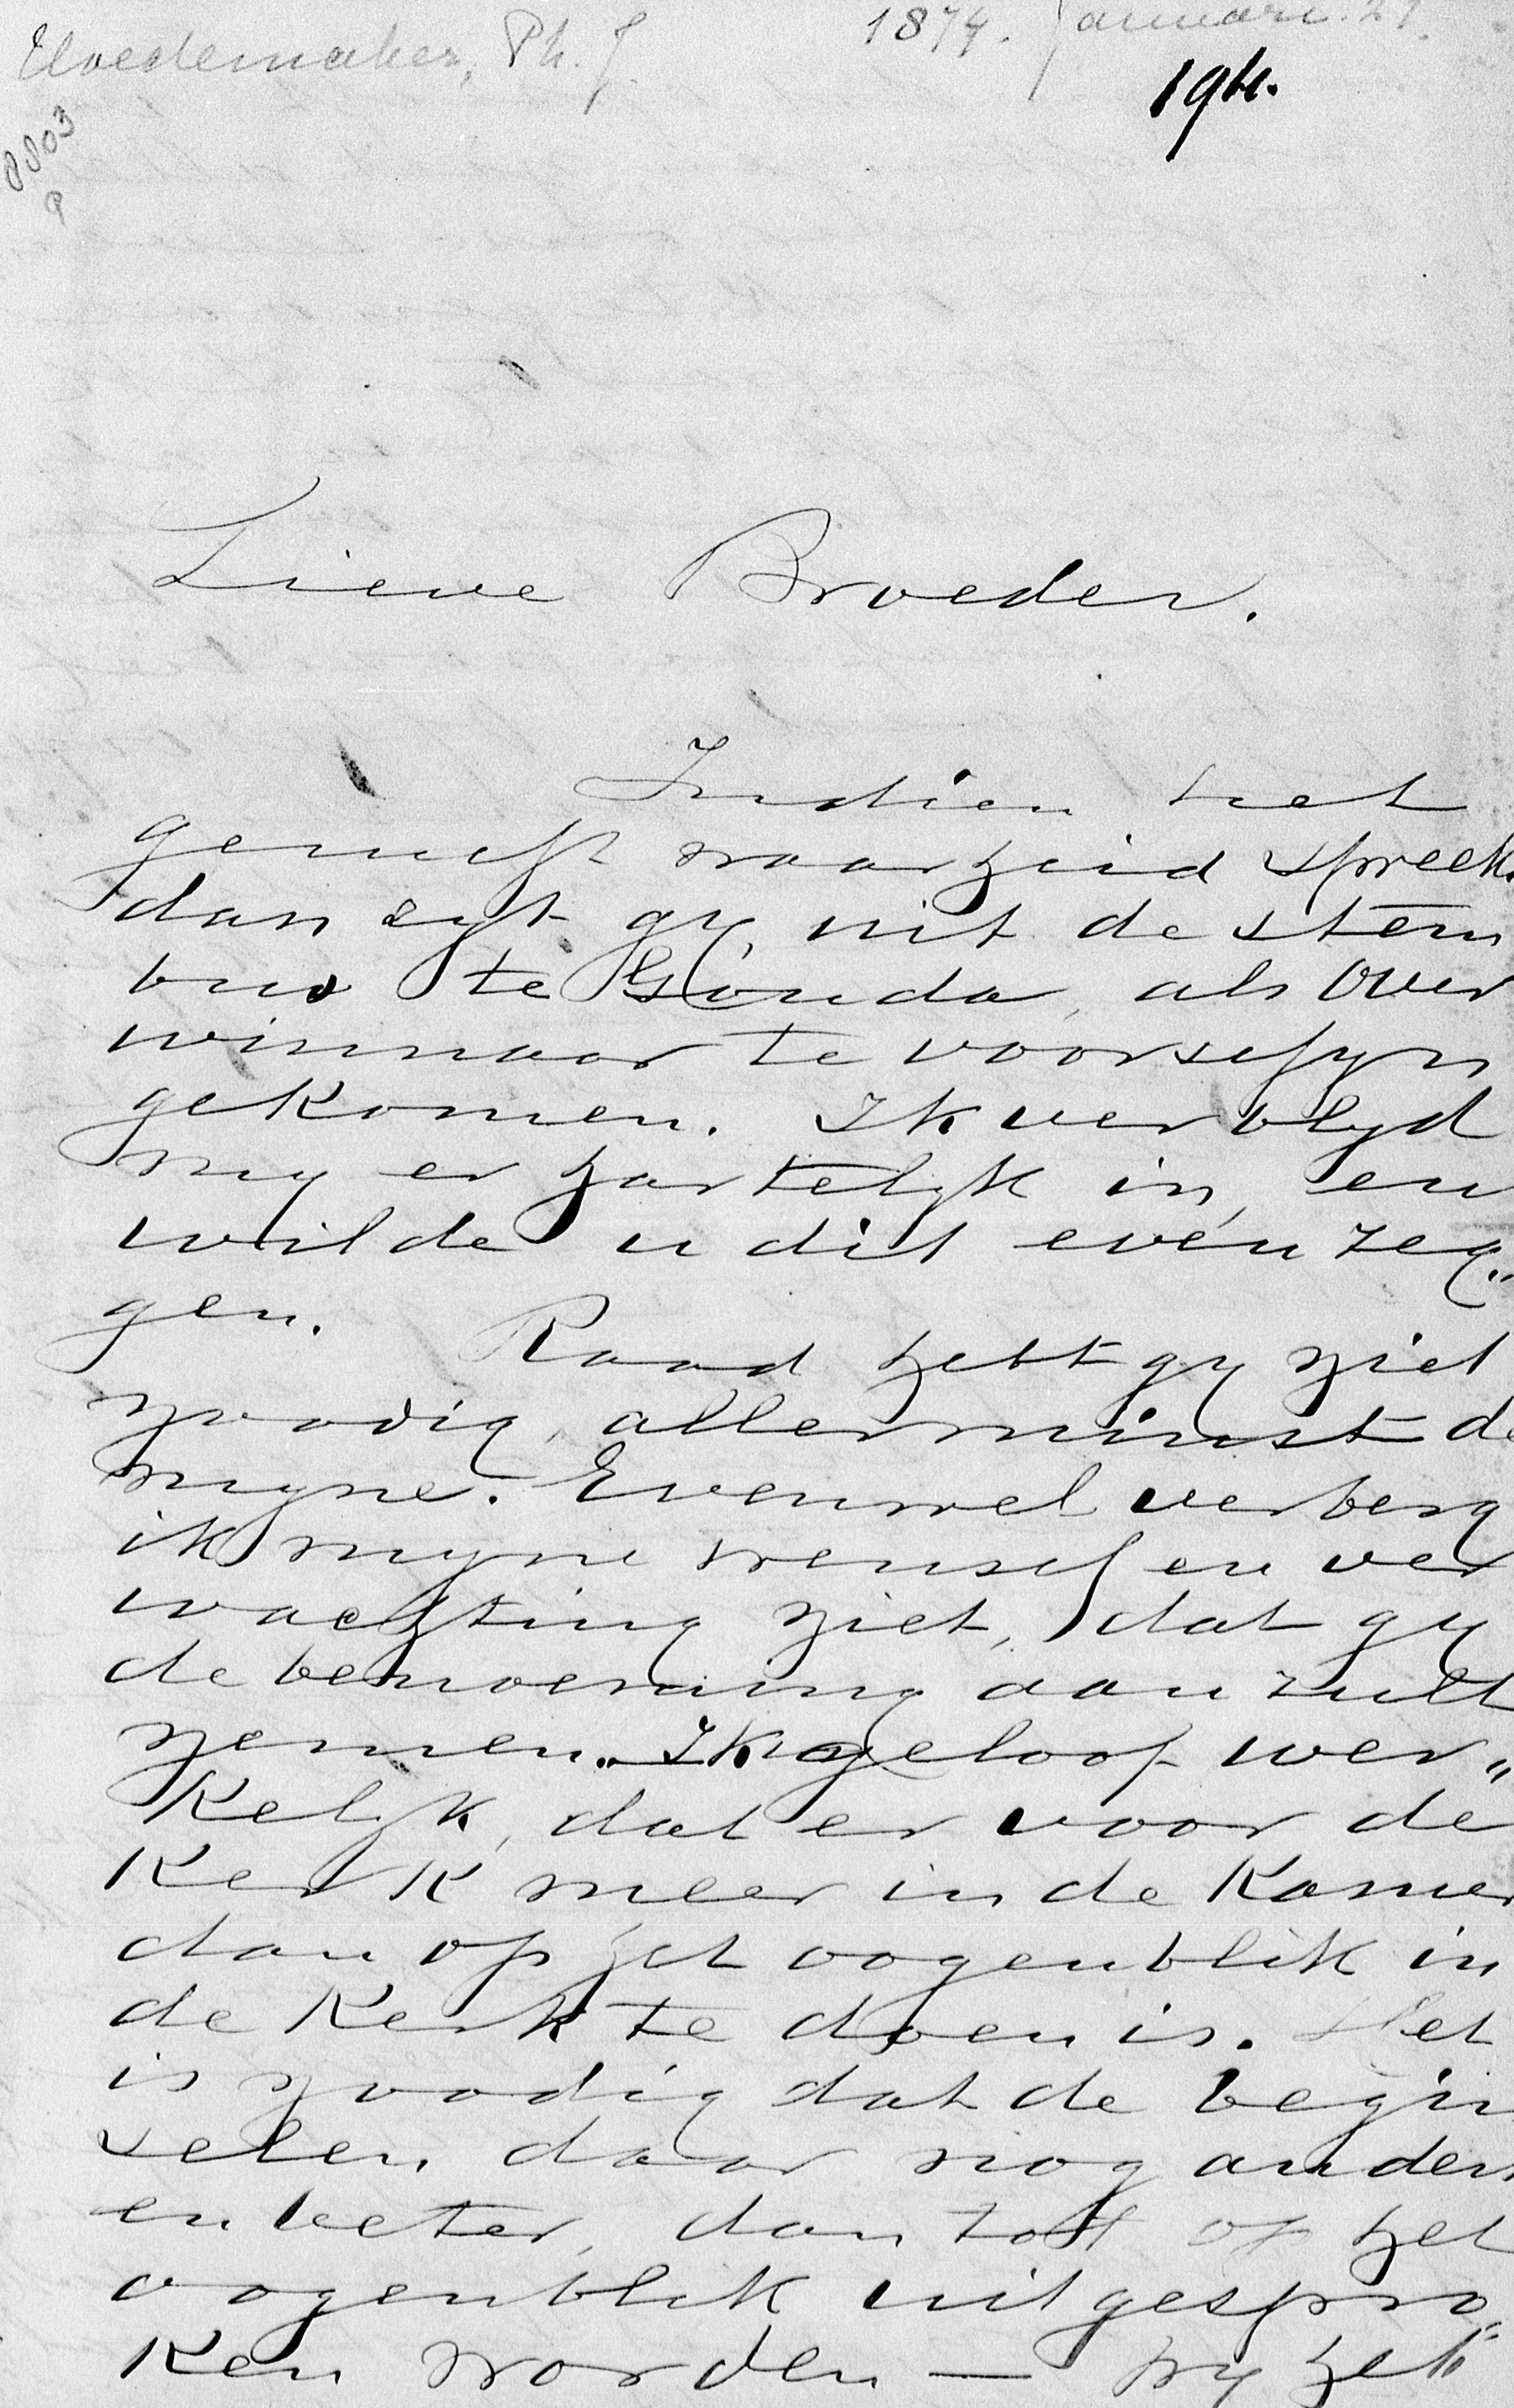 Hoedemaker, Ph. J. 1874. Januari. 21.
191.
8803
P
Lieve Broeder.
Indien het
gerucht waarheid spreekt
dan zyt gy uit de stem
bus te Gouda, als Over
winnaar te voorschyn
gekomen. Ik verblyd
my er hartelyk in, en
wilde u dit even zeg„
gen. Raad hebt gy niet
noodig, allerminst de
myne. Evenwel verberg
ik myne wensch en ver
wachting niet, dat gy
de benoeming aan zult
nemen. Ik geloof wer„
kelyk, dat er voor de
Kerk meer in de Kamer
dan op het oogenblik in
de Kerk te doen is. Het
is noodig dat de begin
selen daar nog anders
en beter, dan tot op het
oogenblik uitgespro„
ken worden — by het